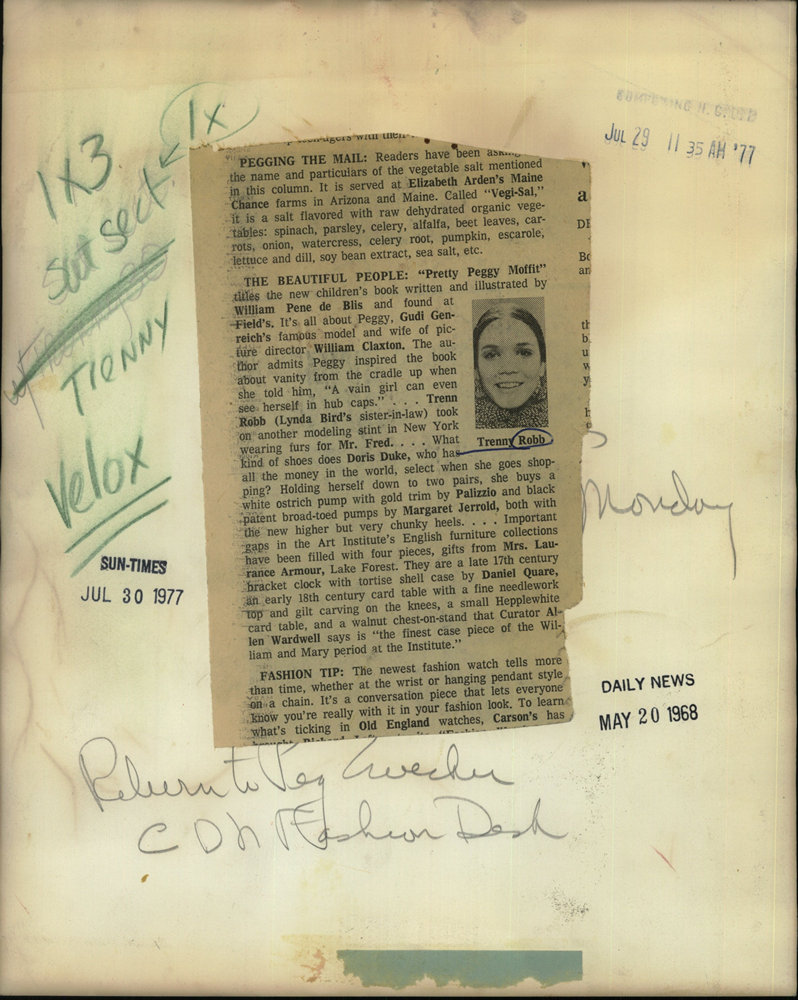 1x
1x3
Sun sect
Trenny
Velox
SUN-TIMES
JUL 30 1977
JUL 29 11 35 AM '77
PEGGING THE MAIL: Readers have been asking
the name and particulars of the vegetable salt mentioned
in this column. It is served at Elizabeth Arden's Maine
Chance farms in Arizona and Maine. Called "Vegi-Sal,"
it is a salt flavored with raw dehydrated organic vege-
tables: spinach, parsley, celery, alfalfa, beet leaves, car-
rots, onion, watercress, celery root, pumpkin, escarole,
lettuce and dill, soy bean extract, sea salt, etc.
THE BEAUTIFUL PEOPLE: "Pretty Peggy Moffit"
titles the new children's book written and illustrated by
William Pene de Blis and found at
Field's. It's all about Peggy, Gudi Gen-
reich's famous model and wife of pic-
ture director William Claxton. The au-
thor admits Peggy inspired the book
about vanity from the cradle up when
she told him, "A vain girl can even
see herself in hub caps." . . . Trenn
Robb (Lynda Bird's sister-in-law) took
on another modeling stint in New York
wearing furs for Mr. Fred. . . . What
kind of shoes does Doris Duke, who has
Trenny Robb
all the money in the world, select when she goes shop-
ping? Holding herself down to two pairs, she buys a
white ostrich pump with gold trim by Palizzio and black
patent broad-toed pumps by Margaret Jerrold, both with
the new higher but very chunky heels. . . . Important
gaps in the Art Institute's English furniture collections
have been filled with four pieces, gifts from Mrs. Lau-
rance Armour, Lake Forest. They are a late 17th century
bracket clock with tortise shell case by Daniel Quare,
an early 18th century card table with a fine needlework
top and gilt carving on the knees, a small Hepplewhite
card table, and a walnut chest-on-stand that Curator Al-
len Wardwell says is "the finest case piece of the Wil-
liam and Mary period at the Institute."
FASHION TIP: The newest fashion watch tells more
than time, whether at the wrist or hanging pendant style
on a chain. It's a conversation piece that lets everyone
know you're really with it in your fashion look. To learn
what's ticking in Old England watches, Carson's has
Monday
DAILY NEWS
MAY 20 1968
Return to Peg Zwecker
CDN Fashion Desk